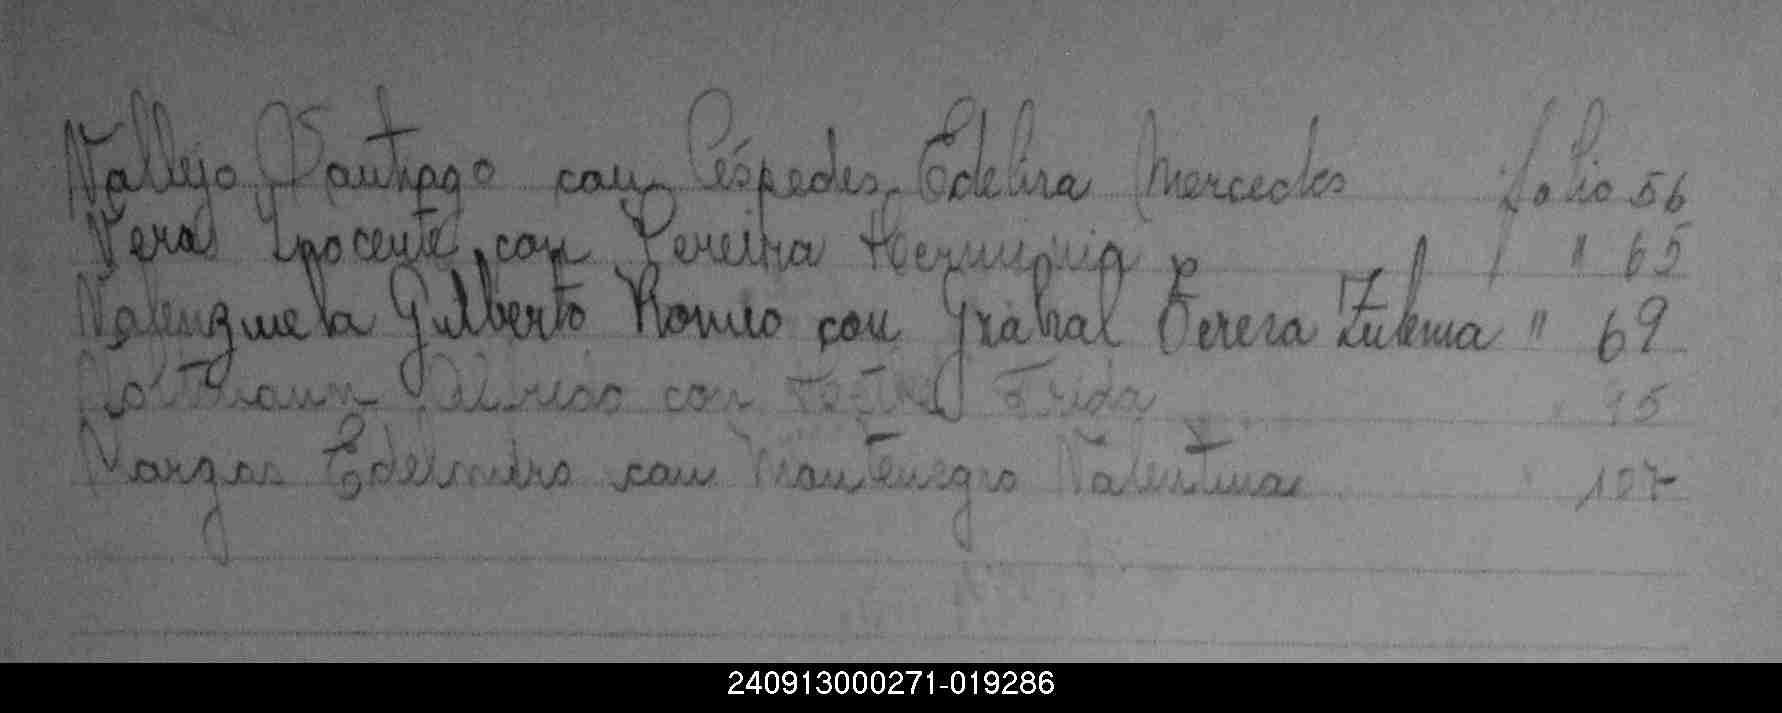 Vallejo Santiago con Céspedes Edelira Mercedes folio 56
Vera Inocente con Pereira Herminia " 65
Valenzuela Gilberto Romeo con Grabal Teresa Zulema " 69
Alfredo con Frida 95
Vargas Edelmiro con Montenegro Valentina 107
240913000271-019286